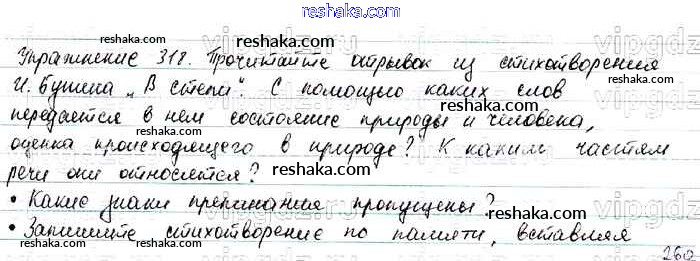 reshaka.com
reshaka.com
Упражнение 318. Прочитайте отрывок из стихотворения
И. Бунина „В степи". С помощью каких слов
reshaka.com
передается в нем состояние природы и человека,
reshaka.com
оценка происходящего в природе? К каким частям
речи они относятся?
reshaka.com
• Какие знаки препинания пропущены?
reshaka.com
• Запишите стихотворение по памяти, вставляя
reshaka.com